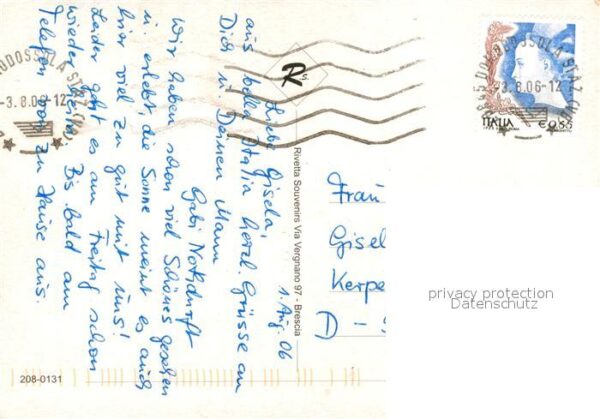 1. Aug. 06
Liebe Gisela,
aus bella Italia herzl. Grüsse an
Dich u. Deinen Mann
Gabi Nothdurft
Wir haben schon viel Schönes gesehen
u. erlebt, die Sonne meint es auch
hier viel zu gut mit uns!
Leider geht es am Freitag schon
wieder heim. Bis bald am
Telefon von zu Hause aus.
Rivetta Souvenirs Via Vergnano 97 - Brescia
208-0131
R
DOMODOSSOLA STAZ
-3.8.06-12
DOMODOSSOLA STAZ
-3.8.06-12
ITALIA
Frau
Gisel
Kerpe
privacy protection
Datenschutz